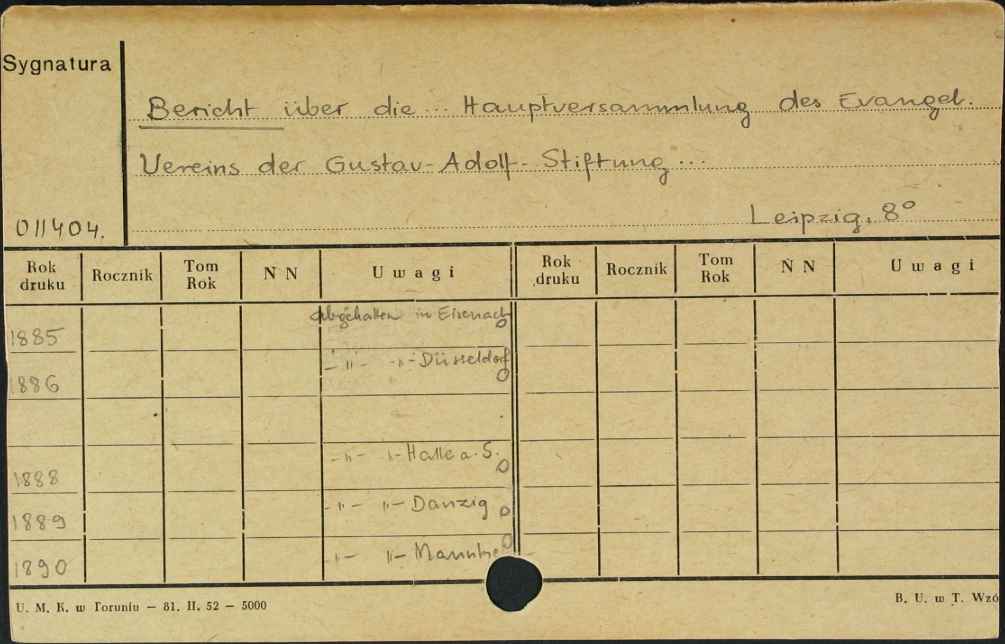 Sygnatura
Bericht über die ... Hauptversammlung des Evangel.
Vereins der Gustav-Adolf-Stiftung ...
Leipzig, 8°
011404.
Rok druku Rocznik Tom Rok N N Uwagi Rok druku Rocznik Tom Rok N N Uwagi
1885 abgehalten in Eisenach
1886 -"- -"- Düsseldorf
1888 -"- "- Halle a. S.
1889 -"- "- Danzig
1890 "- "-
U. M. K. w Toruniu — 81. II. 52 — 5000
B. U. w T. Wzó